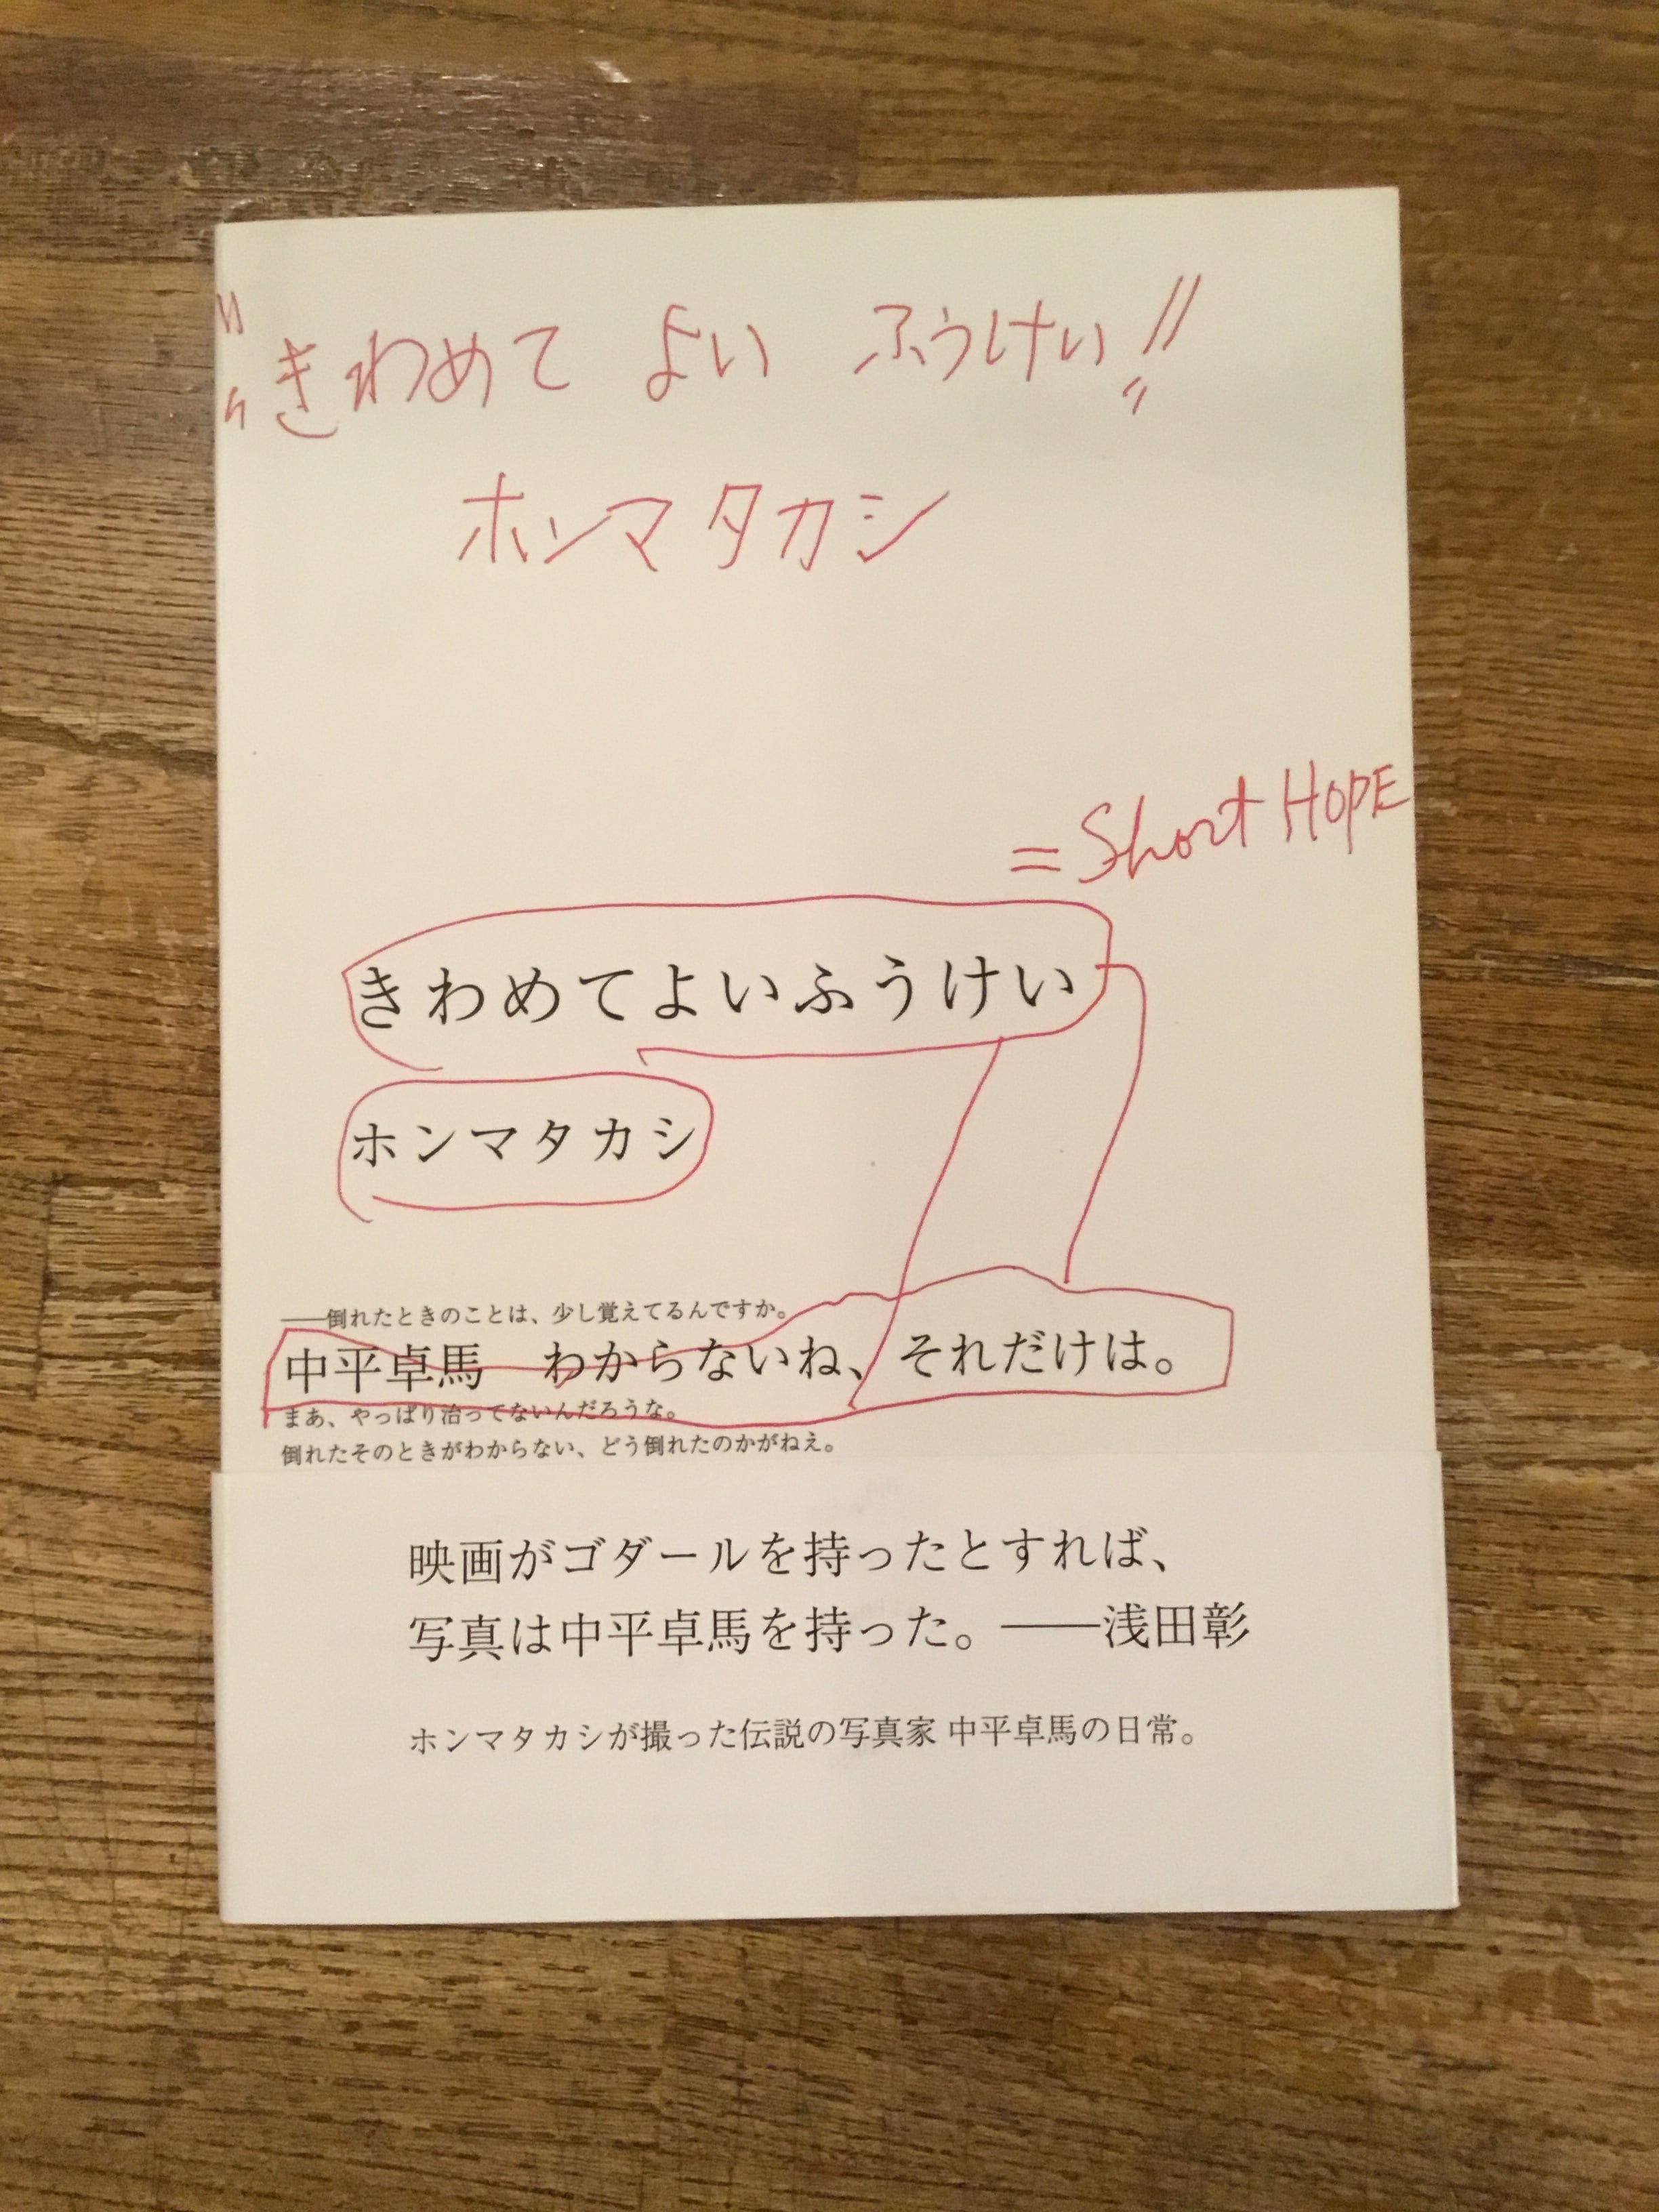 "きわめて よい ふうけい!!"
ホンマタカシ
=Short HOPE
きわめてよいふうけい
ホンマタカシ
――倒れたときのことは、少し覚えてるんですか。
中平卓馬　わからないね、それだけは。
まあ、やっぱり治ってないんだろうな。
倒れたそのときがわからない、どう倒れたのかがねえ。
映画がゴダールを持ったとすれば、
写真は中平卓馬を持った。――浅田彰
ホンマタカシが撮った伝説の写真家 中平卓馬の日常。